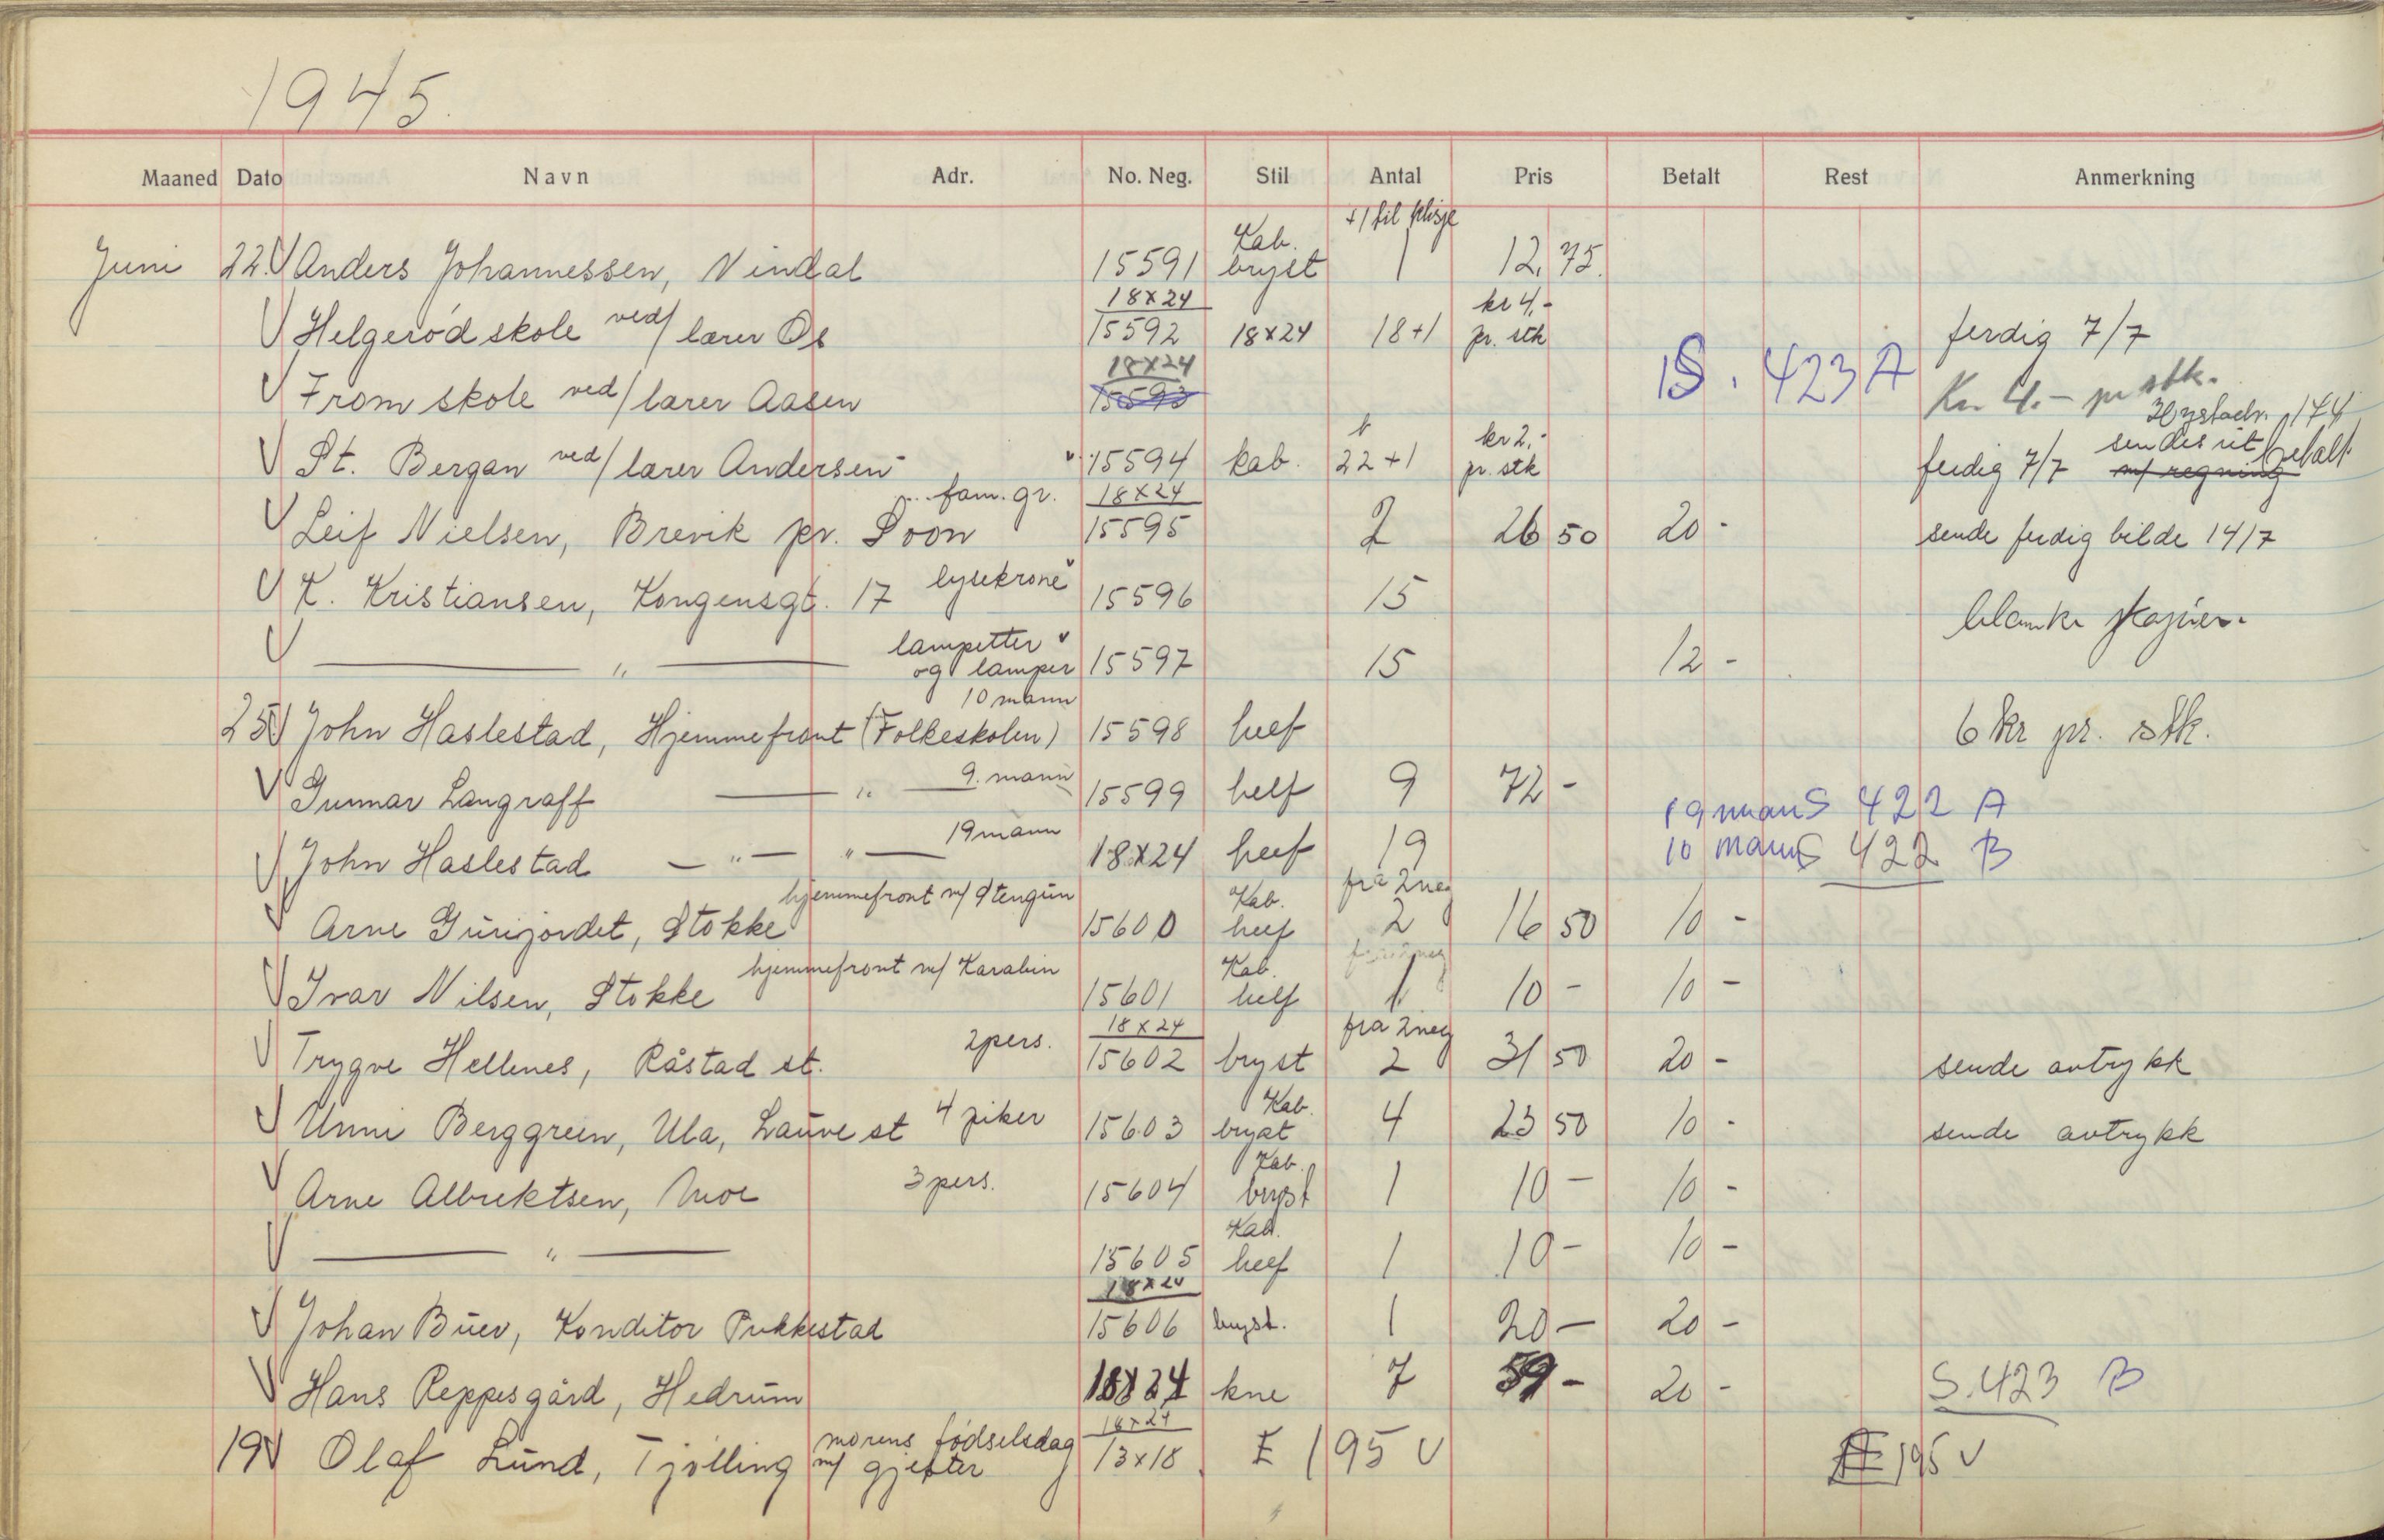 1945.
Maaned Dato Navn Adr. No. Neg. Stil Antal Pris Betalt Rest Anmerkning
+1 til klisje
Juni 22. Anders Johannessen, Vindal 15591 Kab. bryst 1 12,75.
18x24 kr 4,-
Helgerød skole ved/ lærer Os 15592 18x24 18+1 pr. stk ferdig 7/7
18x24
From skole ved/ lærer Aasen 15593 S. 423 A Kr. 4.- pr stk.
174
kr 2,-
St. Bergan ved/ lærer Andersen 15594 kab. 22+1 pr. stk ferdig 7/7 sendes ut m/ regning betalt
fam. gr. 18x24
Leif Nielsen, Brevik pr. Soon 15595 2 26 50 20 - sende ferdig bilde 14/7
K. Kristiansen, Kongensgt. 17 lysekrone 15596 15
blanke kopier.
—— " —— lampetter og lamper 15597 15 12 -
10 mann
25 John Haslestad, Hjemmefront (Folkeskolen) 15598 helf 6 kr pr. stk.
Gunnar Langraff —— " —— 9. mann 15599 helf 9 72 -
19 mann S 422 A
John Haslestad — " — " — 19 mann 18x24 helf 19 10 mann S 422 B
hjemmefront m/ Stengun Kab. fra 2 neg
Arne Gurijordet, Stokke 15600 helf 2 16 50 10 -
hjemmefront m/ Karabin Kab.
Ivar Nilsen, Stokke 15601 helf 1 10 - 10 -
2 pers. 18x24 fra 2 neg
Trygve Hellenes, Råstad st. 15602 bryst 2 31 50 20 - sende avtrykk
Kab.
Unni Berggreen, Ula, Lauve st 4 piker 15603 bryst 4 23 50 10 - sende avtrykk
Kab.
Arne Albrektsen, Moe 3 pers. 15604 bryst 1 10 - 10 -
Kab.
—— " —— 15605 helf 1 10 - 10 -
18x24
Johan Buer, Konditor Pukkestad 15606 bryst. 1 20 - 20 -
Hans Reppesgård, Hedrum 18x24 kne 7 59 - 20 - S. 423 B
morens fødselsdag 18x24
19 Olaf Lund, Tjølling m/ gjester 13x18 E 195 V E 195 V